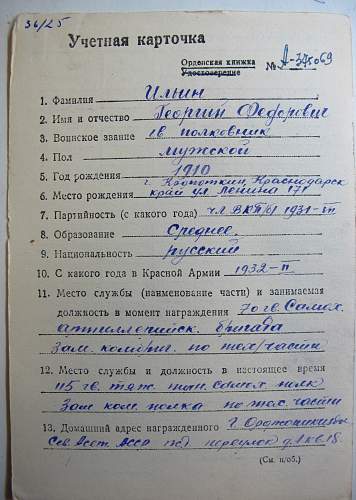 36/25
Учетная карточка
Орденская книжка
Удостоверение № А-375069
1. Фамилия Ильин
2. Имя и отчество Георгий Федорович
3. Воинское звание гв. полковник
4. Пол мужской
5. Год рождения 1910
г. Кропоткин, Краснодарск
6. Место рождения край ул. Ленина 171
7. Партийность (с какого года) чл. ВКП(б) 1931-
8. Образование Среднее
9. Национальность русский
10. С какого года в Красной Армии 1932-
11. Место службы (наименование части) и занимаемая
должность в момент награждения 70 гв. Самох.
артиллерийск. бригада
Зам. ком. по тех/части
12. Место службы и должность в настоящее время
115 гв. тяж. самох. полк
Зам. ком. полка по тех. части
13. Домашний адрес награжденного г. Орджоникидзе
Сев. Осет. АССР переулок кв. 18
(См. н/об.)